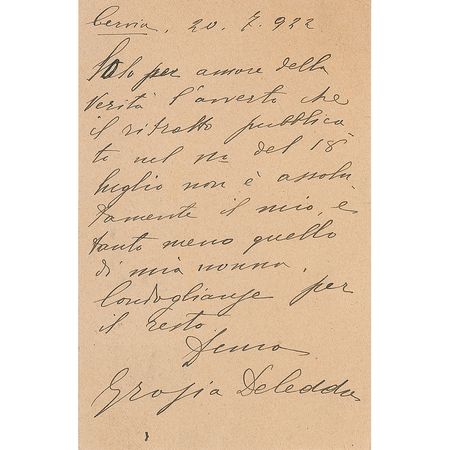 Cervia, 20. 7. 922
Solo per amore della
Verità l'averto che
il ritratto pubblica
to nel no del 18
luglio non è assolu
tamente il mio, e
tanto meno quello
di mia nonna.
Condoglianze per
il resto.
Grazia Deledda